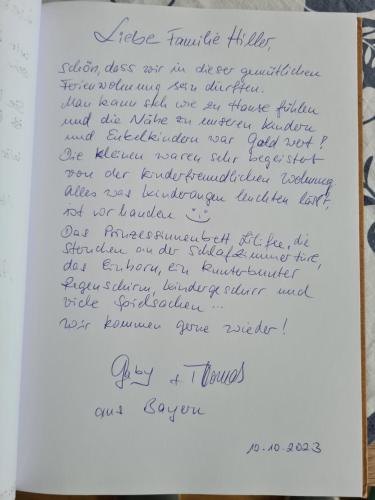 Liebe Familie Hiller,
schön, dass wir in dieser gemütlichen
Ferienwohnung sein durften.
Man kann sich wie zu Hause fühlen
und die Nähe zu unseren Kindern
und Enkelkindern war Gold wert!
Die kleinen waren sehr begeistert
von der kinderfreundlichen Wohnung,
alles was kinderaugen leuchten lässt,
ist vorhanden
Das Prinzessinnenbett Lilifee, die
Sternchen an der Schlafzimmertüre,
das Einhorn, ein kunterbunter
Regenschirm, kindergeschirr und
viele Spielsachen ...
wir kommen gerne wieder!
Gaby + Thomas
aus Bayern
10.10.2023